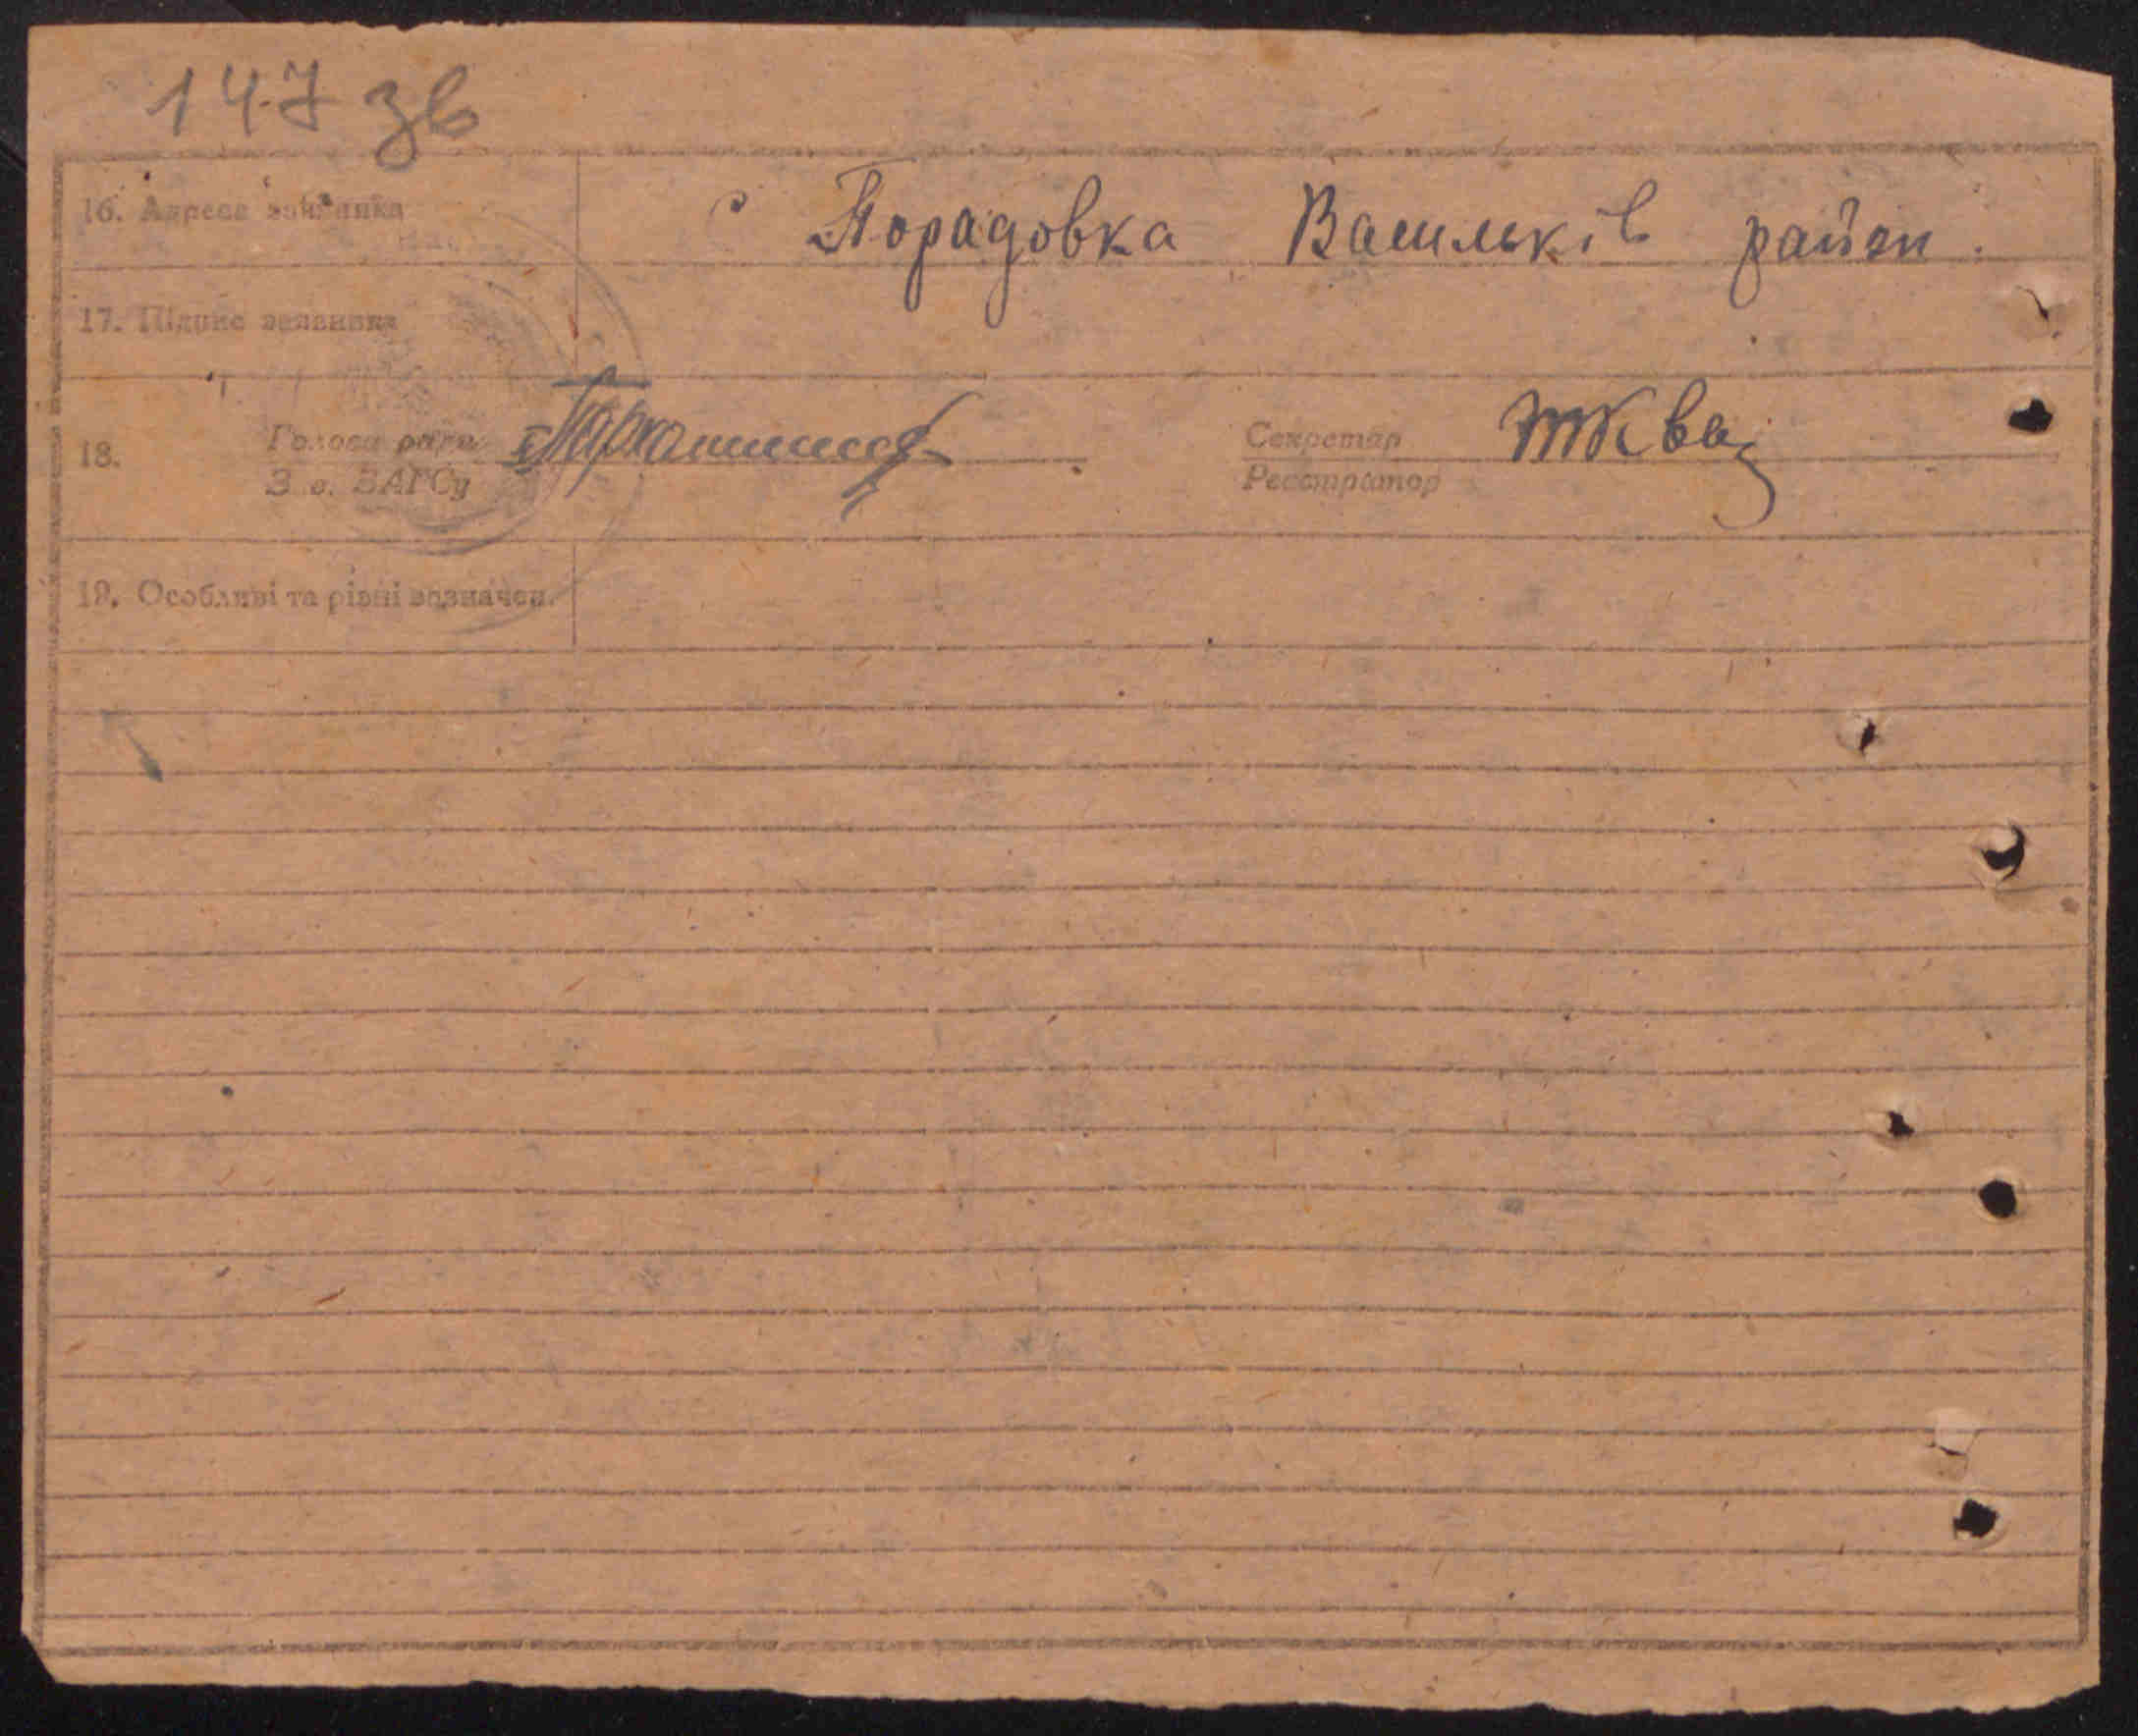 147 зв
16. Адреса заявника с Порадовка Васильків район.
17. Підпис заявника
18. Голова ради Секретар
З в. ЗАГСу Реєстратор
19. Особливі та різні зазначен.